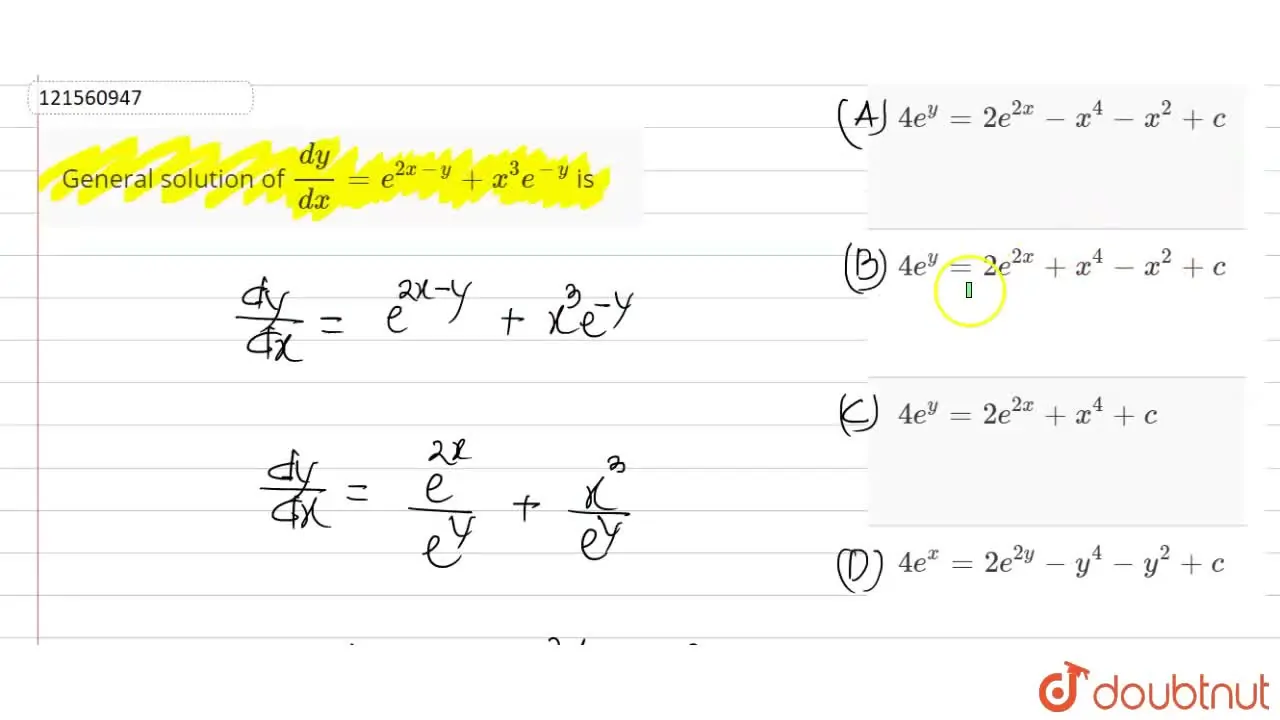 121560947
General solution of dy/dx = e^{2x−y} + x^3e^{−y} is
dy/dx = e^{2x−y} + x^3e^{−y}
dy/dx = e^{2x}/e^y + x^3/e^y
(A) 4e^y = 2e^{2x} − x^4 − x^2 + c
(B) 4e^y = 2e^{2x} + x^4 − x^2 + c
(C) 4e^y = 2e^{2x} + x^4 + c
(D) 4e^x = 2e^{2y} − y^4 − y^2 + c
doubtnut